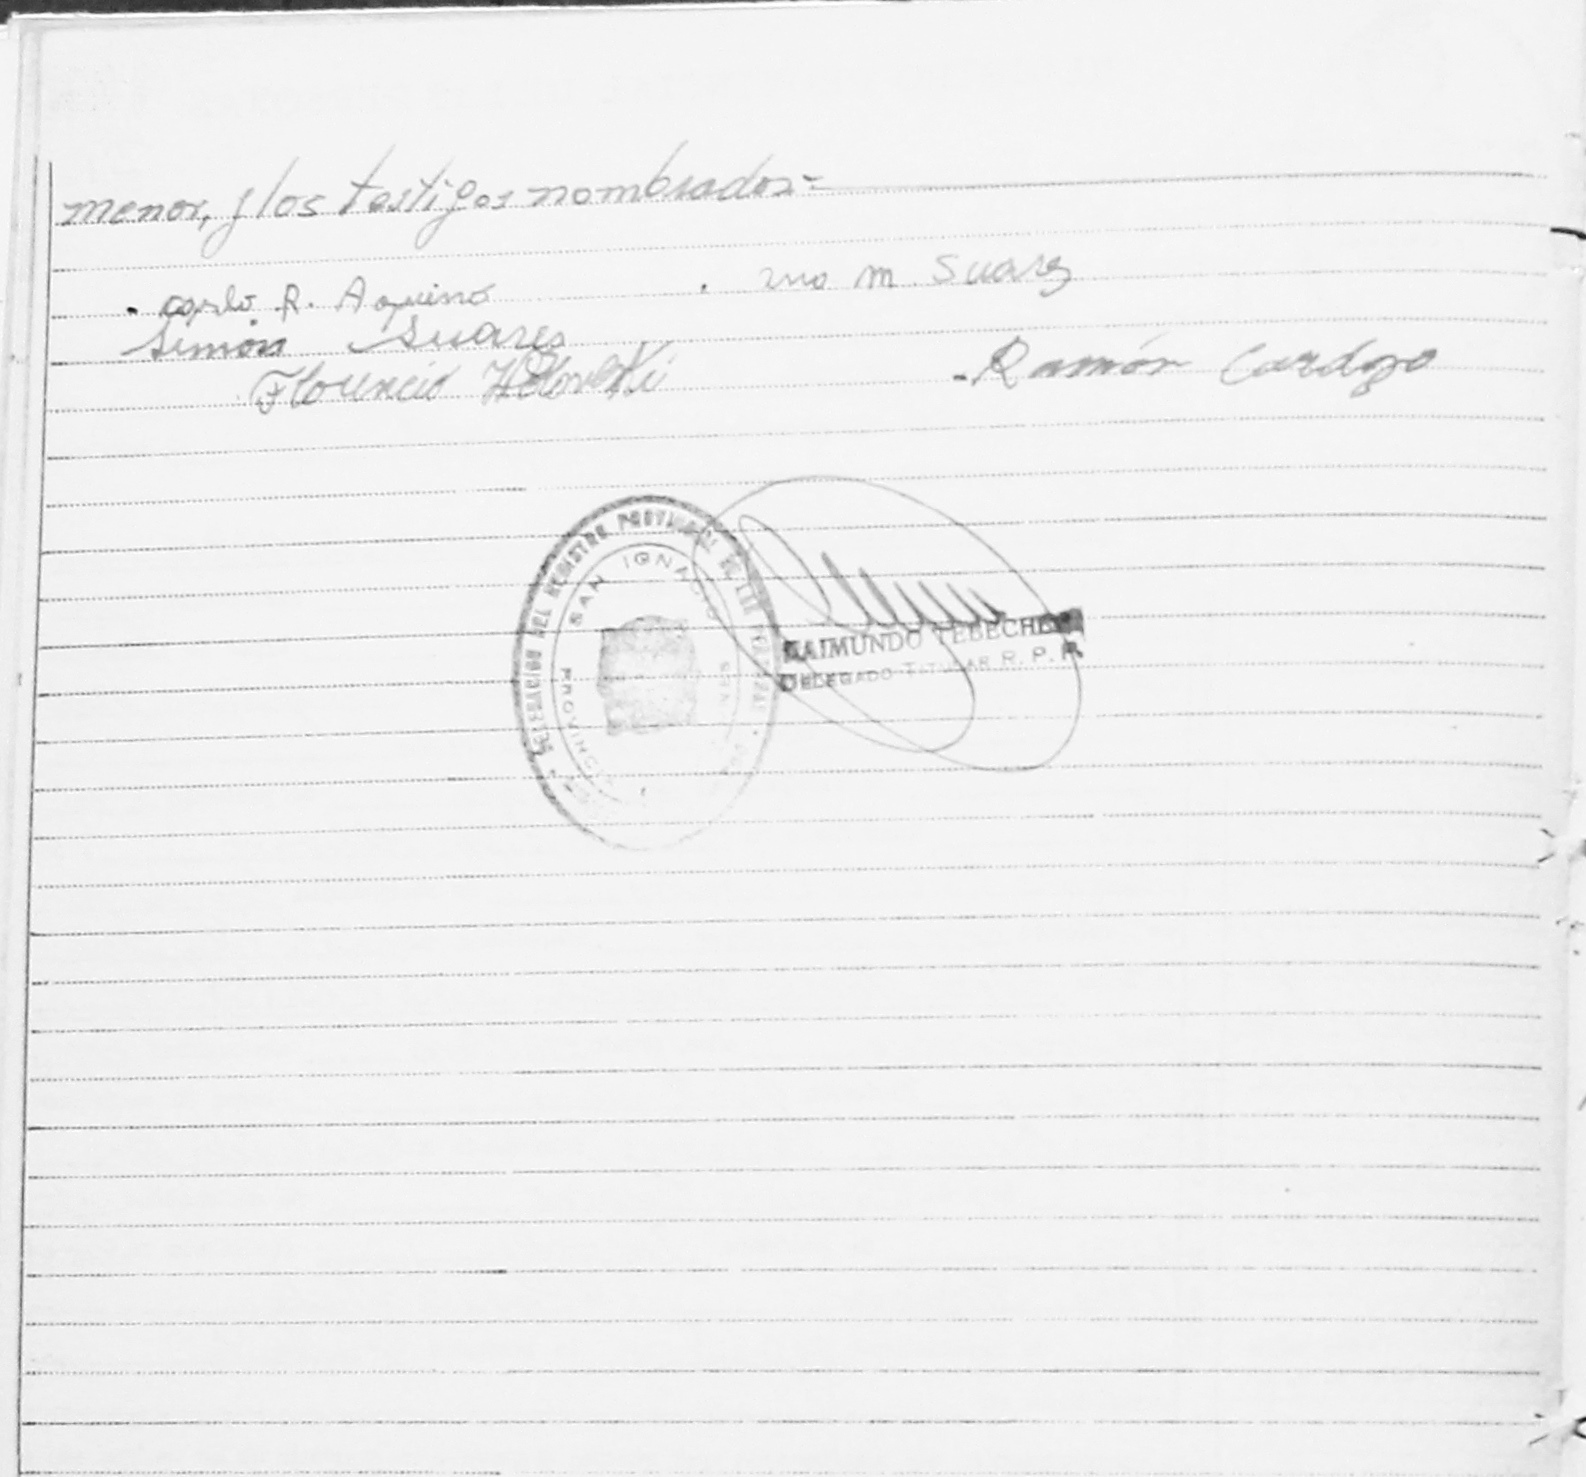 menor, y los testigos nombrados=
. carlo. R. Aquino . M. Suarez
Simón Suarez
Florencio
-Ramón Cardozo
DELEGACION DEL REGISTRO PROVINCIAL DE LAS
SAN IGNACIO
PROVINCIA
RAIMUNDO TEBECHERY
DELEGADO TITULAR R. P. P.